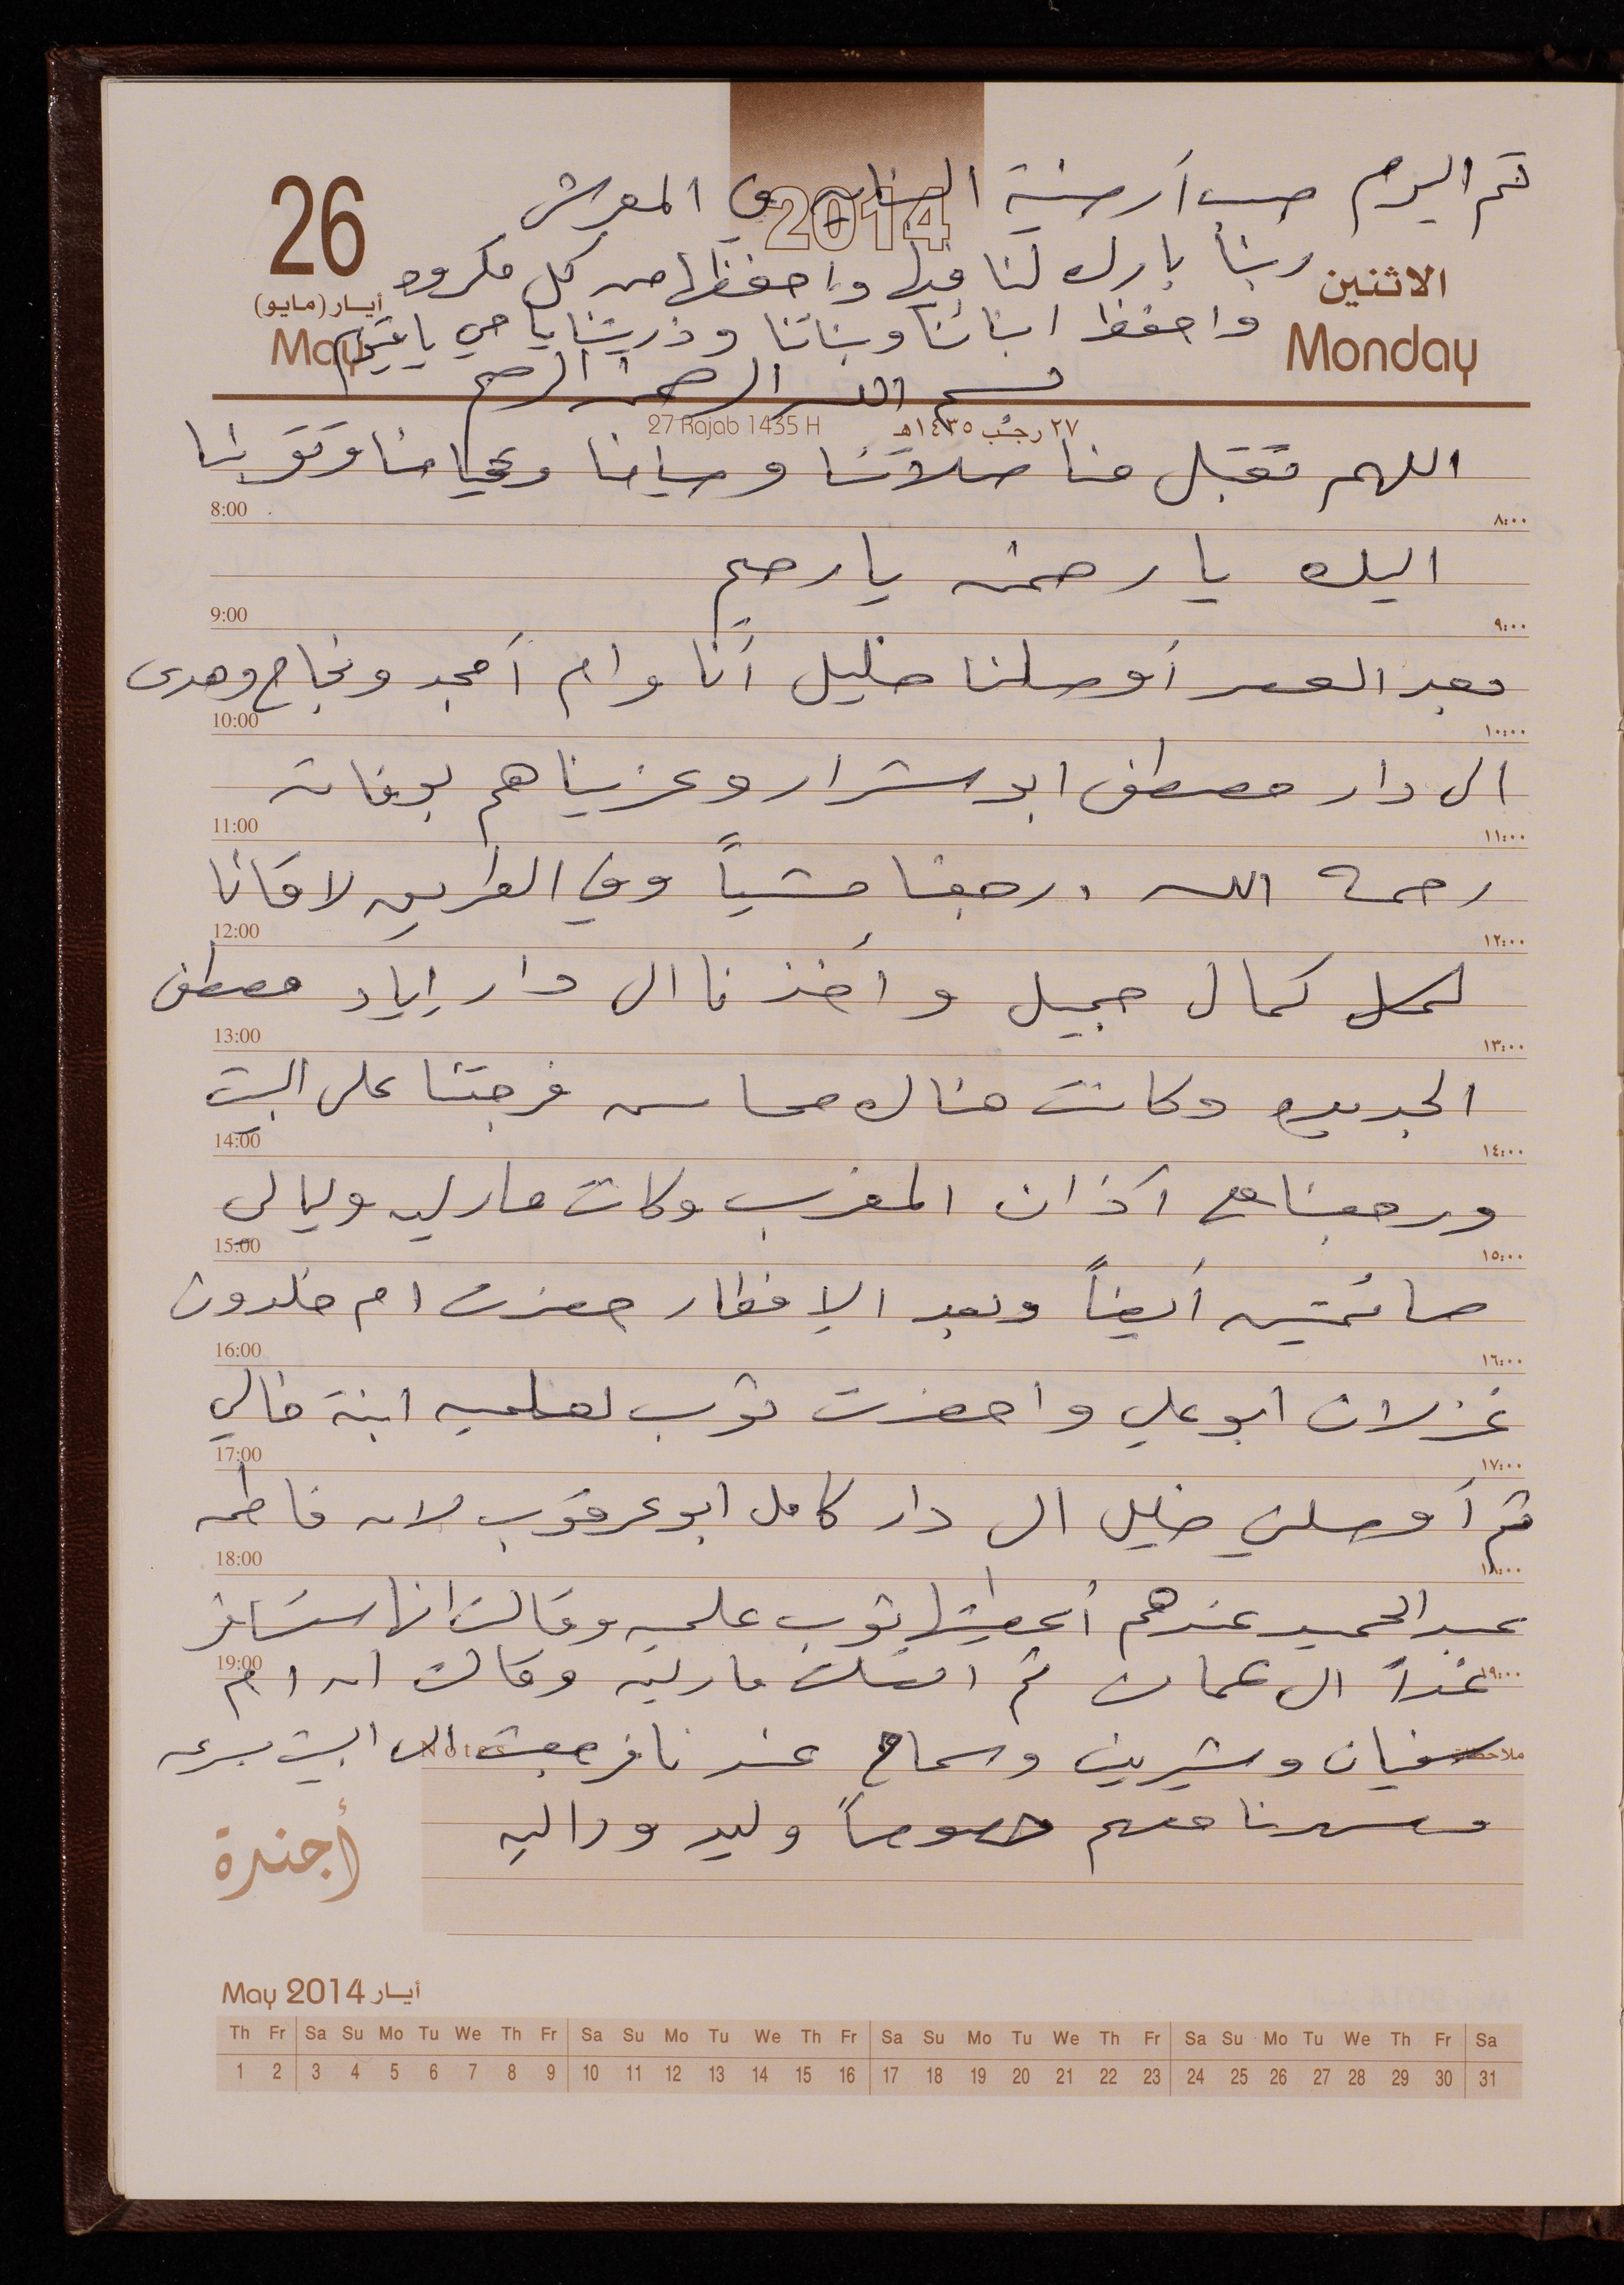 2014
تم اليوم صب أرضية البناء في المعرش
26
ربنا بارك لنا فيها واحفظها من كل مكروه
الاثنين
أيار (مايو)
واحفظ ابنائنا وبناتنا وذريتنا يا حي يا قيوم
May
Monday
بسم الله الرحمن الرحيم
27 Rajab 1435 H
٢٧ رجب ١٤٣٥هـ
اللهم تقبل منا صلاتنا وصيامنا وقيامنا وتقربنا
8:00 ٨:٠٠
اليك يا رحمن يا رحيم
9:00 ٩:٠٠
بعد العصر أوصلنا خليل أنا وام أمجد ونجاح وهدى
10:00 ١٠:٠٠
الى دار مصطفى ابو شرار وعزيناهم بوفاته
11:00 ١١:٠٠
رحمه الله ، رجعنا مشياً وفي الطريق لاقانا
12:00 ١٢:٠٠
كمال جميل وأخذنا الى دار إياد مصطفى
13:00 ١٣:٠٠
الجديده وكانت هناك محاسن فرجتنا على البيت
14:00 ١٤:٠٠
ورجعنا مع أذان المغرب وكانت مارلين وليالي
15:00 ١٥:٠٠
صائمتين أيضاً وبعد الإفطار حضرت ام خلدون
16:00 ١٦:٠٠
غزلان ابو علي واحضرت ثوب لعلميه ابنة خالي
17:00 ١٧:٠٠
ثم أوصلني خليل الى دار كامل ابو عرقوب لان فاطمه
18:00 ١٨:٠٠
عبد الحميد عندهم أعطيتها ثوب علميه وقالت انها ستسافر
19:00 ١٩:٠٠
غداً الى عمان ثم اتصلت مارلين وقالت ان ام
Notes ملاحظات
سفيان وشيرين وسماح عندنا فرجعت الى البيت بسرعه
وسهرنا معهم خصوصاً وليد وداليه
أجندة
May 2014 أيار
Th Fr Sa Su Mo Tu We Th Fr Sa Su Mo Tu We Th Fr Sa Su Mo Tu We Th Fr Sa Su Mo Tu We Th Fr Sa
1 2 3 4 5 6 7 8 9 10 11 12 13 14 15 16 17 18 19 20 21 22 23 24 25 26 27 28 29 30 31